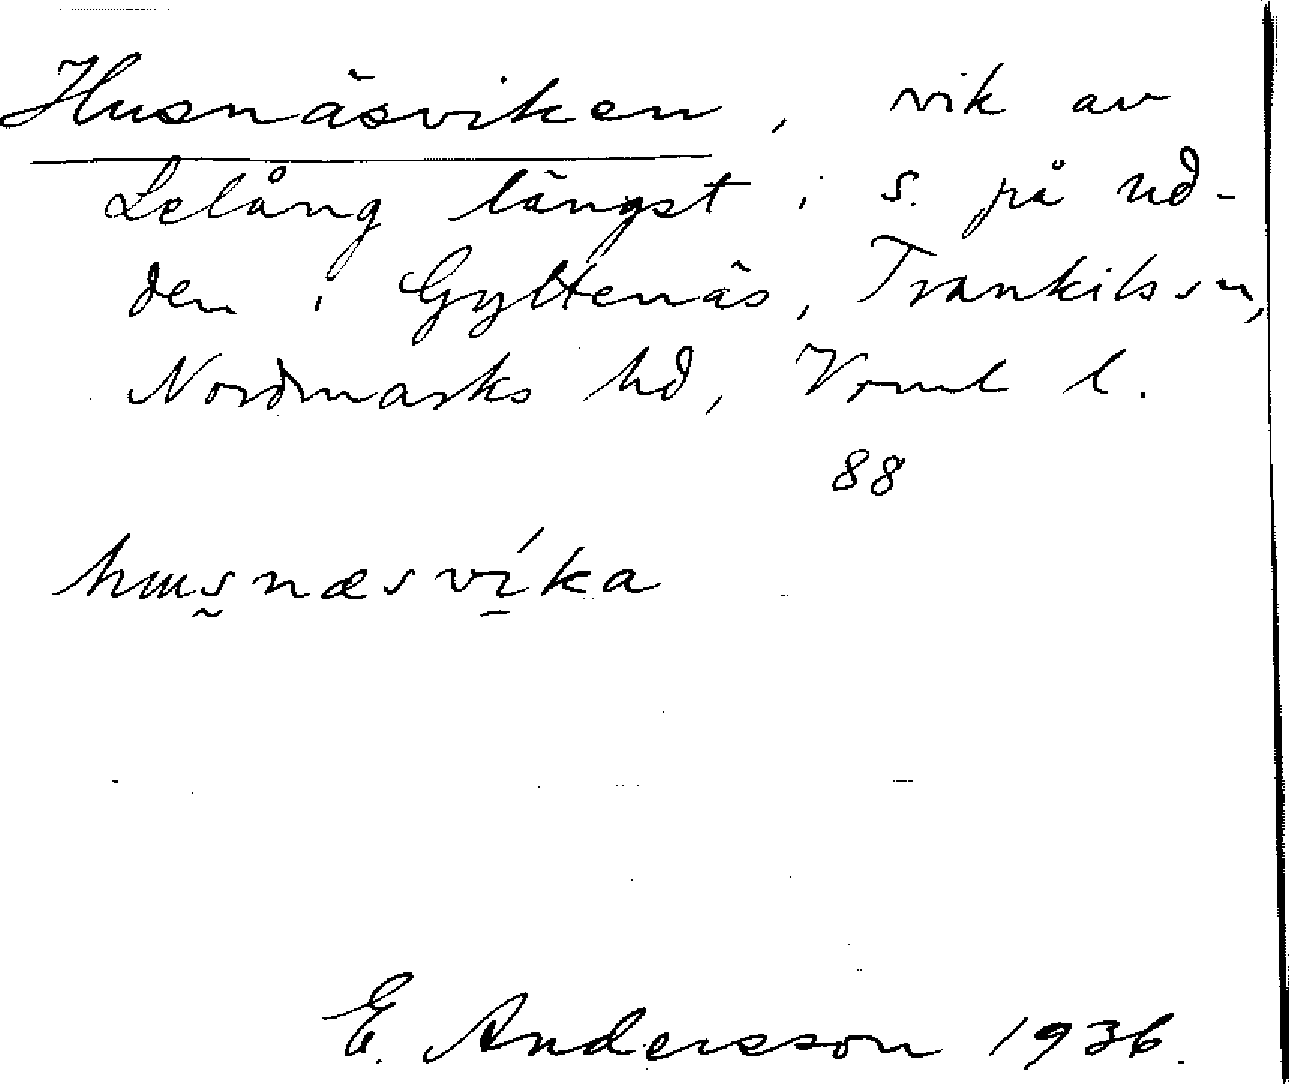 Husnäsviken, vik av
Lelång längst i s. på ud-
den i Gyltenäs, Trankils sn,
Nordmarks hd, Vrml l.
88
hɯs̰næsví̱ka
E. Andersson 1936.